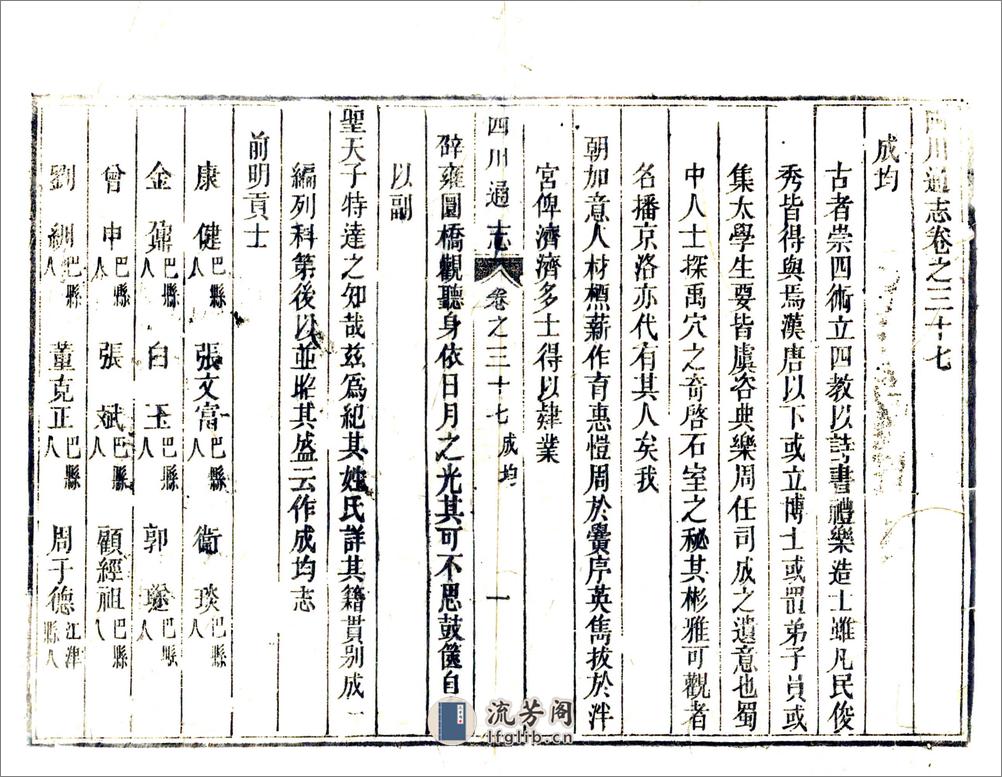 四川通志卷之三十七
成均
古者崇四術立四教以詩書禮樂造士雖凡民俊
秀皆得與焉漢唐以下或立博士或置弟子員或
集太學生要皆虞咨典樂周任司成之遺意也蜀
中人士探禹穴之奇啓石室之秘其彬雅可觀者
名播京洛亦代有其人矣我
朝加意人材櫄薪作育惠愷周於黌序英雋拔於泮
宮俾濟濟多士得以肄業
四川通志 卷之三十七 成均 一
辟雍圜橋觀聽身依日月之光其可不思鼓篋自
以副
聖天子特達之知哉兹爲紀其姓氏詳其籍貫别成一
編列科第後以並昭其盛云作成均志
前明貢士
康健 巴縣人 張文富 巴縣人 衞琰 巴縣人
金鼐 巴縣人 白玉 巴縣人 郭 巴縣人
曾申 巴縣人 張斌 巴縣人 顧經祖 巴縣人
劉綱 巴縣人 董克正 巴縣人 周于德 江津縣人
流芳阁
lfglib.cn